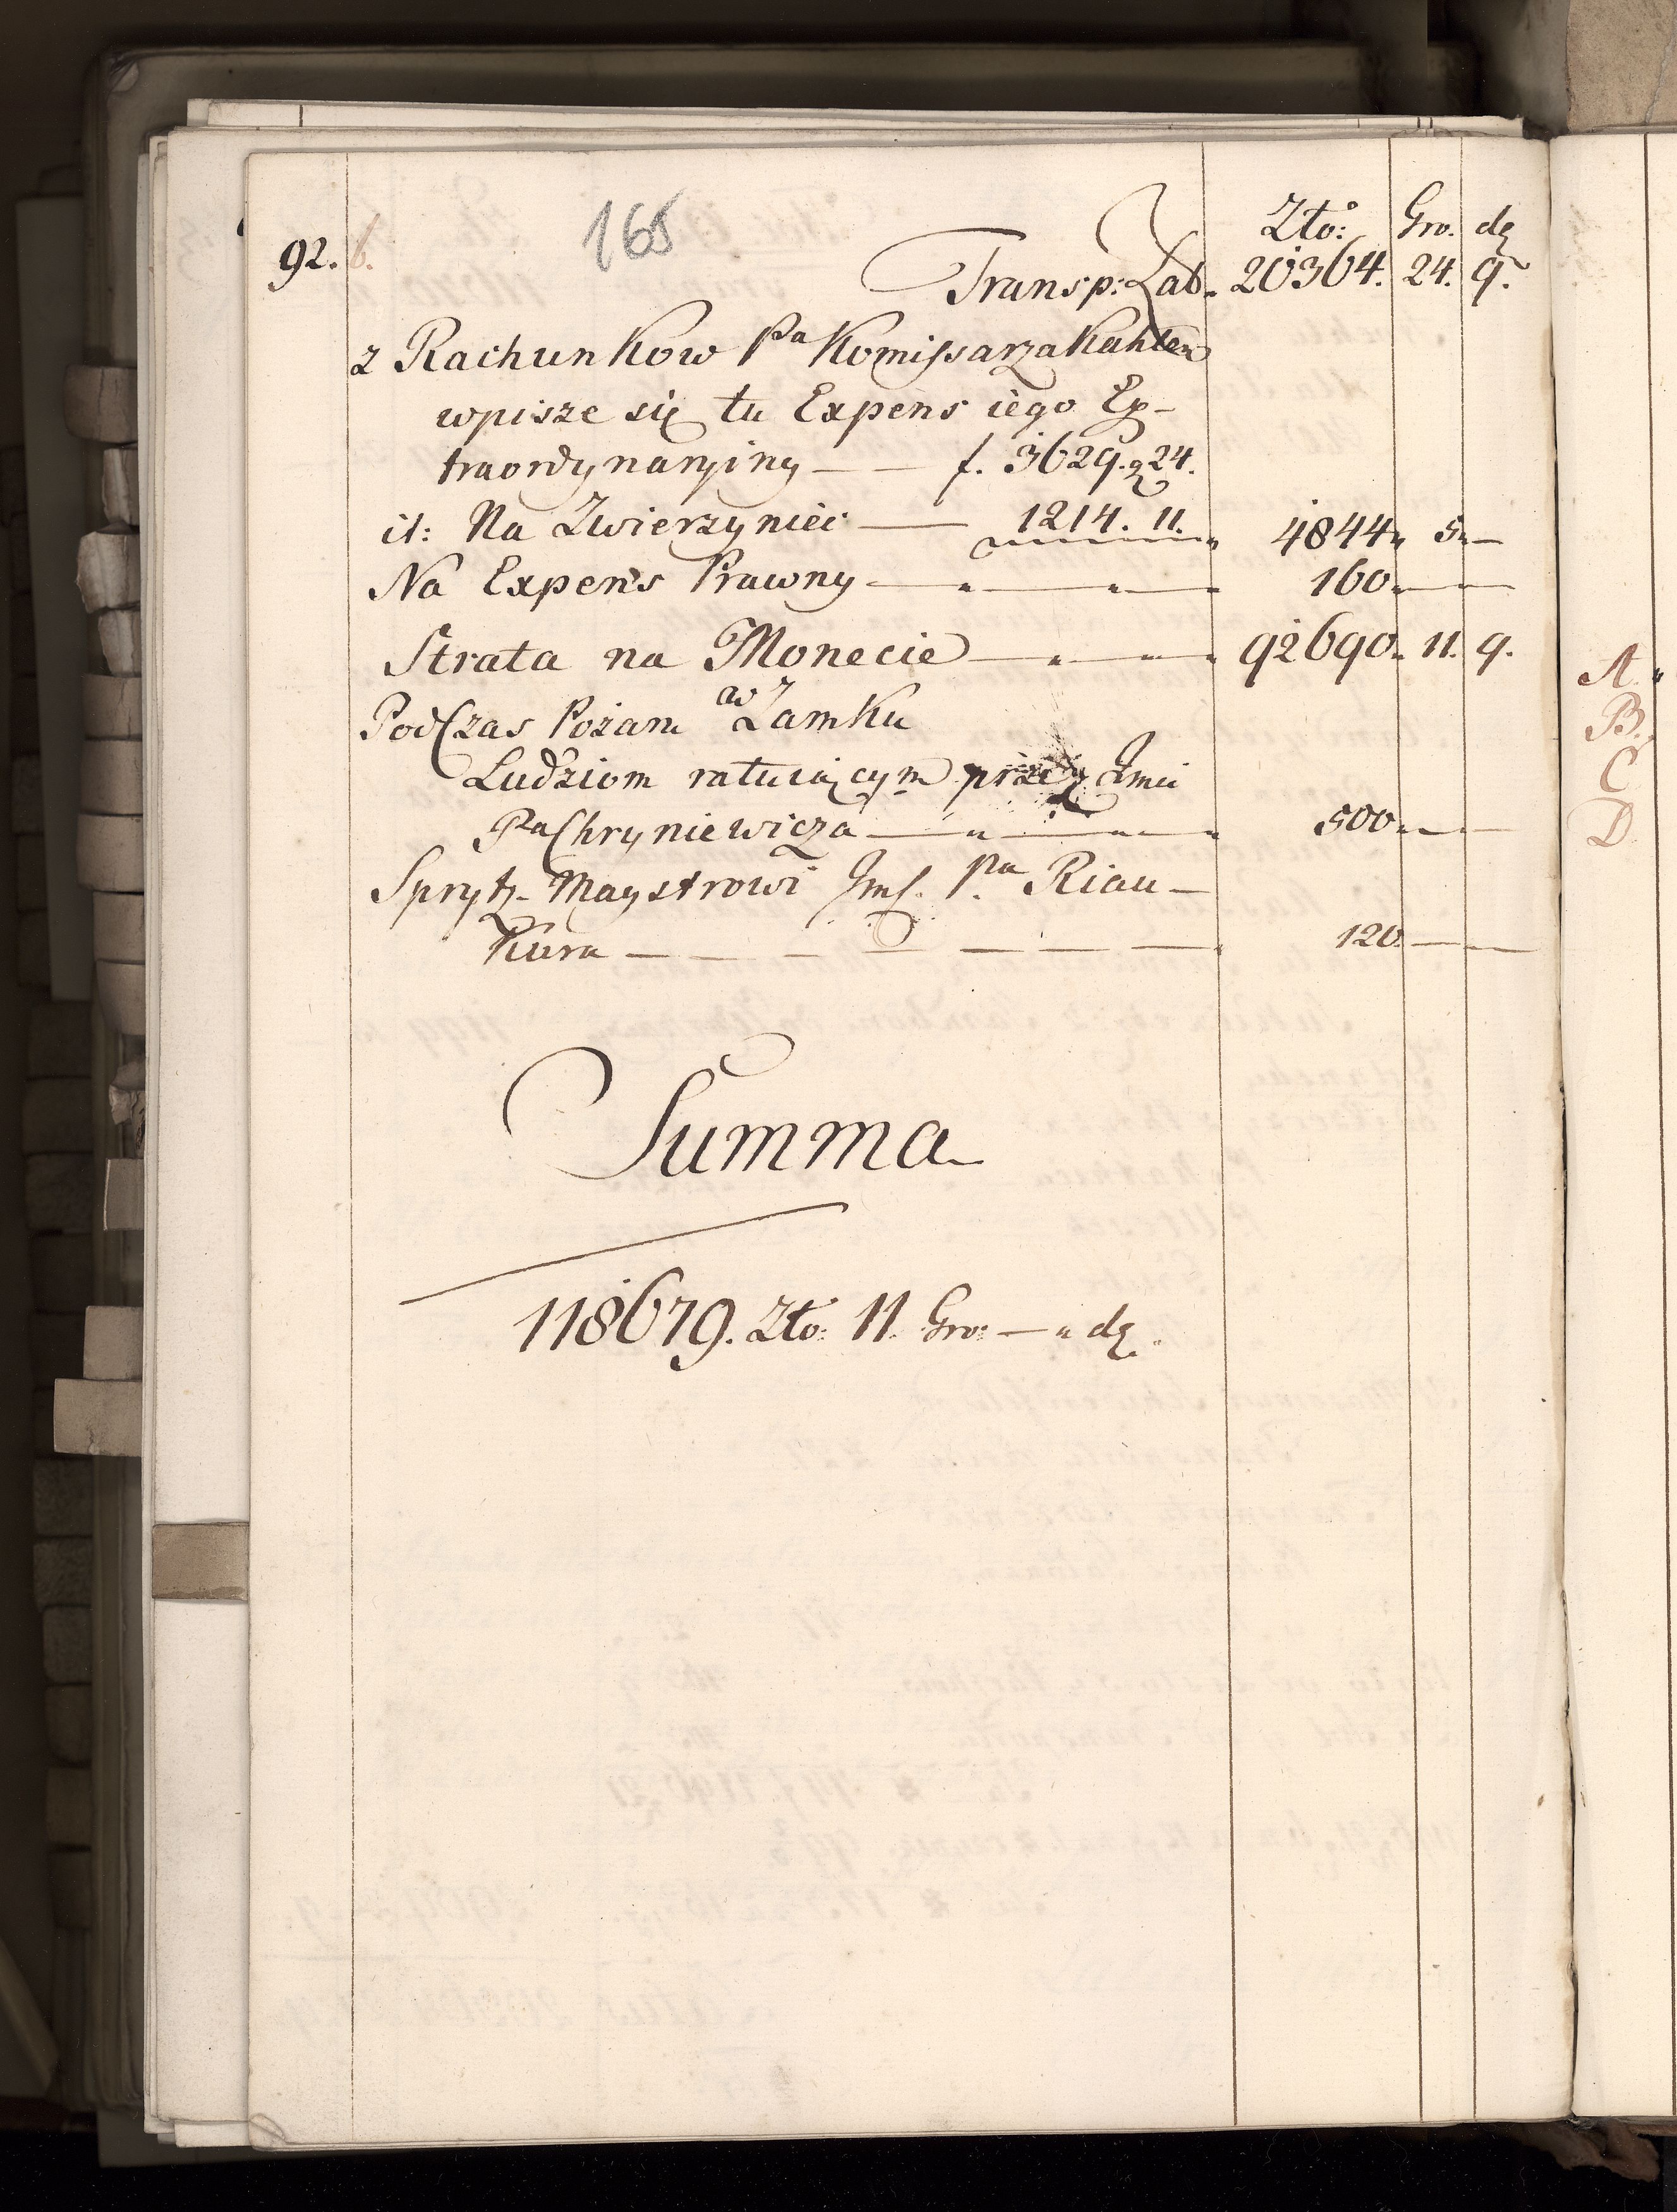 165
Zło: Gro. dz
92. b. Transp: Lat. 20364. 24. 9.
z Rachunkow Pa Komissarza Kahlen
wpisze się tu Expens iego Ex-
traordynaryiny — — f. 3629. g 24.
it: Na Zwierzyniec — 1214. 11. 4844 " 5 " —
Na Expens Prawny — " — " — " 160 " — —
Strata na Monecie — " — " — " 92690 " 11. 9.
Podczas Pożaru w Zamku
Ludziom ratuiącym przez Jmci
Pa Chryniewicza — " — " — " 500 " — —
Sprytz-Maystrowi Jmś. Pa Riau-
Kura — — — — — — — 120 — —
Summa
118679. Zło: 11. Gro: — " dz.
A. "
B.
C
D